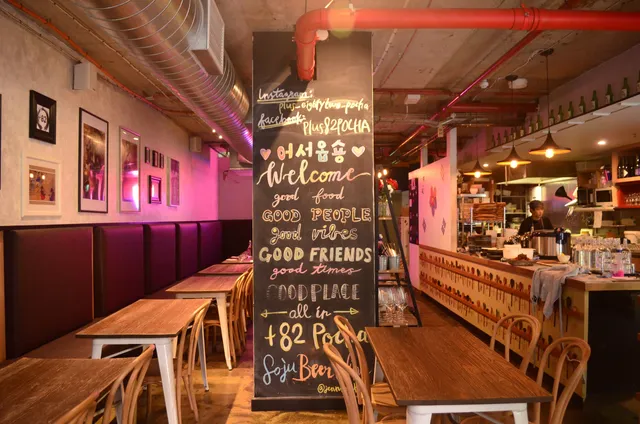 Instagram:
plus_eightytwo_pocha
facebook:
Plus82POCHA
어서옵숑
Welcome
good food
GOOD PEOPLE
good vibes
GOOD FRIENDS
good times
GOOD PLACE
all in
+82 Pocha
Soju Beer